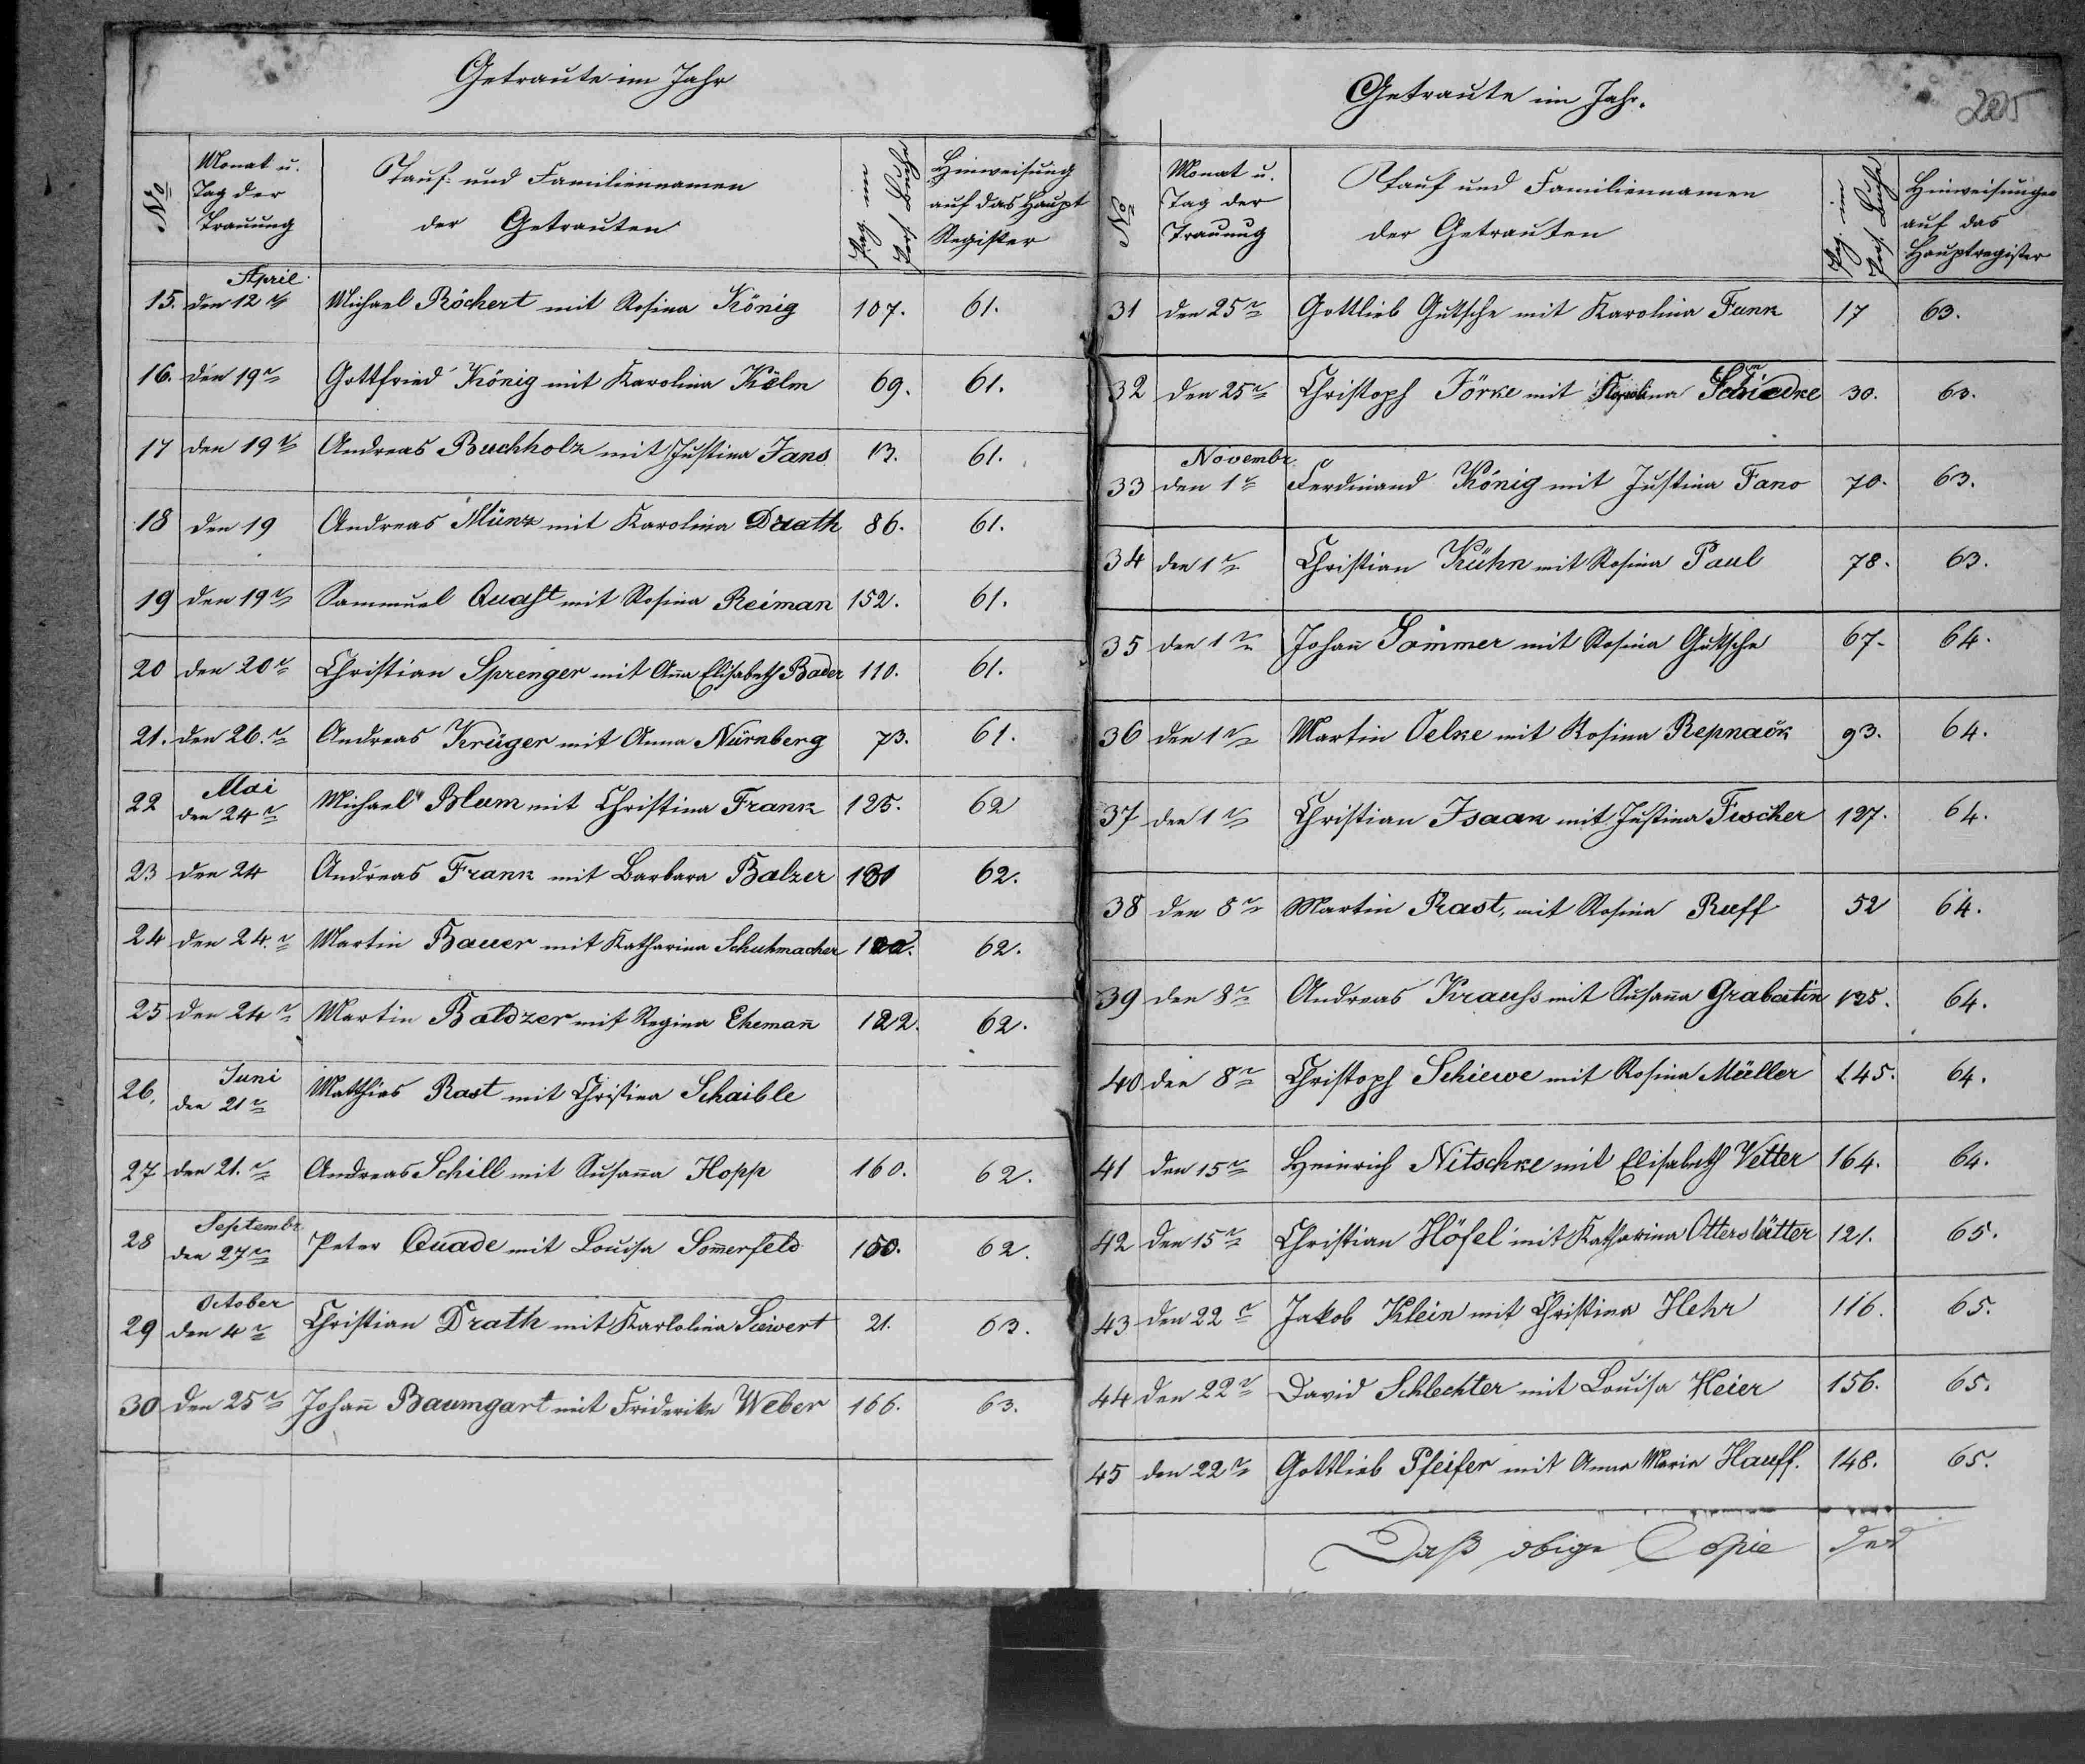 Getraute im Jahr
No
Monat u. Tag der Trauung
Tauf- und Familiennamen der Getrauten
Pag. im Pers. Buche
Hinweisung auf das Haupt Register
April
15. den 12ⁿ Michael Röchert mit Rosina König 107. 61.
16. den 19ⁿ Gottfried König mit Karolina Kelm 69. 61.
17 den 19ⁿ Andreas Buchholz mit Justina Jans 13. 61.
18 den 19 Andreas Münz mit Karolina Drath 86. 61.
19 den 19ⁿ Sammuel Quast mit Rosina Reiman 152. 61.
20 den 20ⁿ Christian Sprenger mit Aña Elisabeth Bader 110. 61.
21. den 26.ⁿ Andreas Krüger mit Anna Nürnberg 73. 61.
Mai
22 den 24ⁿ Michael Blum mit Christina Frank 125. 62
23 den 24 Andreas Frank mit Barbara Balzer 62.
24 den 24.ⁿ Martin Bauer mit Katharina Schuhmacher 62.
25 den 24ⁿ Martin Baldzer mit Regina Ehemañ 122. 62.
Juni
26. den 21ⁿ Matthias Rast mit Christina Schaible
27 den 21.ⁿ Andreas Schill mit Susaña Hopp 160. 62.
Septembr
28 den 27ⁿ Peter Quade mit Louisa Som̄erfeld 150. 62.
October
29 den 4ⁿ Christian Drath mit Karlolina Seivert 21. 63.
30 den 25ⁿ Johañ Baumgart mit Friderike Weber 166. 63.
Getraute im Jahr.
205
No
Monat u. Tag der Trauung
Tauf und Familiennamen der Getrauten
Pag. im Pers. Buche
Hinweisungen auf das Hauptregister
31 den 25ⁿ Gottlieb Gutsche mit Karolina Funk 17 63.
32 den 25ⁿ Christoph Jörke mit Karolina 30. 63.
Novembr
33 den 1ⁿ Ferdinand König mit Justina Jans 70. 63.
34 den 1ⁿ Christian Kühn mit Rosina Paul 78. 63.
35 den 1ⁿ Johañ Sommer mit Rosina Gutsche 67. 64.
36 den 1ⁿ Martin Oelke mit Rosina Repnack 93. 64.
37 den 1ⁿ Christian Isaak mit Justina Fischer 127. 64.
38 den 8ⁿ Martin Rast, mit Rosina Ruff 52 64.
39 den 8ⁿ Andreas Krauss mit Susaña Grabatin 135. 64.
40 den 8ⁿ Christoph Schiewe mit Rosina Müller 145. 64.
41 den 15ⁿ Heinrich Nitschke mit Elisabeth Vetter 164. 64.
42 den 15ⁿ Christian Höfel mit Katharina Otterstätter 121. 65.
43 den 22ⁿ Jakob Klein mit Christina Hehr 116. 65.
44 den 22ⁿ David Schlechter mit Louisa Heier 156. 65.
45 den 22ⁿ Gottlieb Pfeifer mit Anna Maria Hauff. 148. 65.
Daß obige Copie des